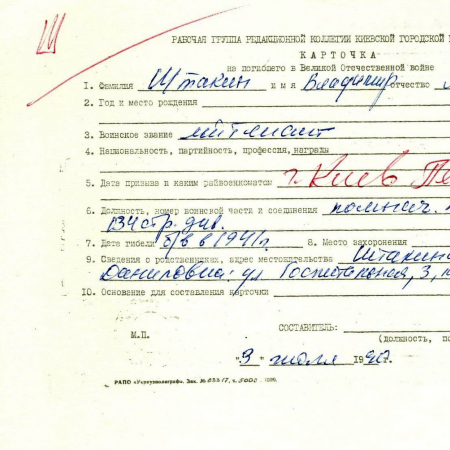 Ш
РАБОЧАЯ ГРУППА РЕДАКЦИОННОЙ КОЛЛЕГИИ КИЕВСКОЙ ГОРОДСКОЙ
КАРТОЧКА
на погибшего в Великой Отечественной войне
1. Фамилия Штакин имя Владимир отчество
2. Год и место рождения
3. Воинское звание лейтенант
4. Национальность, партийность, профессия, награды
5. Дата призыва и каким райвоенкоматом г. Киев
6. Должность, номер воинской части и соединения помнач.
134 стр. див.
7. Дата гибели б/в в 1941г. 8. Место захоронения
9. Сведения о родственниках, адрес местожительства
Даниловна: ул. Госпитальная, 3,
10. Основание для составления карточки
СОСТАВИТЕЛЬ:
М.П. (должность,
"3" июля 1990г.
РАПО «Укрвузполиграф». Зак. №